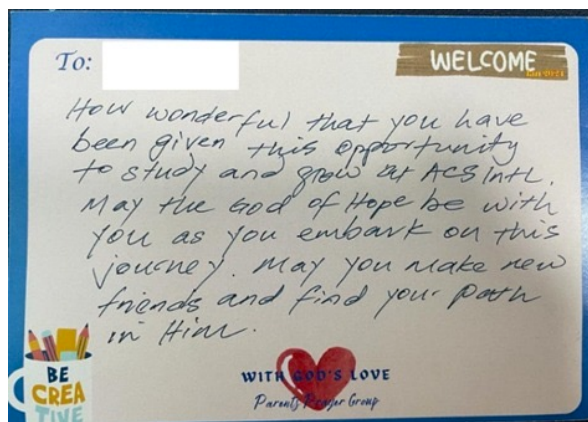 To:
WELCOME
How wonderful that you have
been given this opportunity
to study and grow at ACS Intl.
May the God of Hope be with
you as you embark on this
journey. May you make new
friends and find your path
in Him.
BE
CREA
TIVE
WITH GOD'S LOVE
Parents Prayer Group